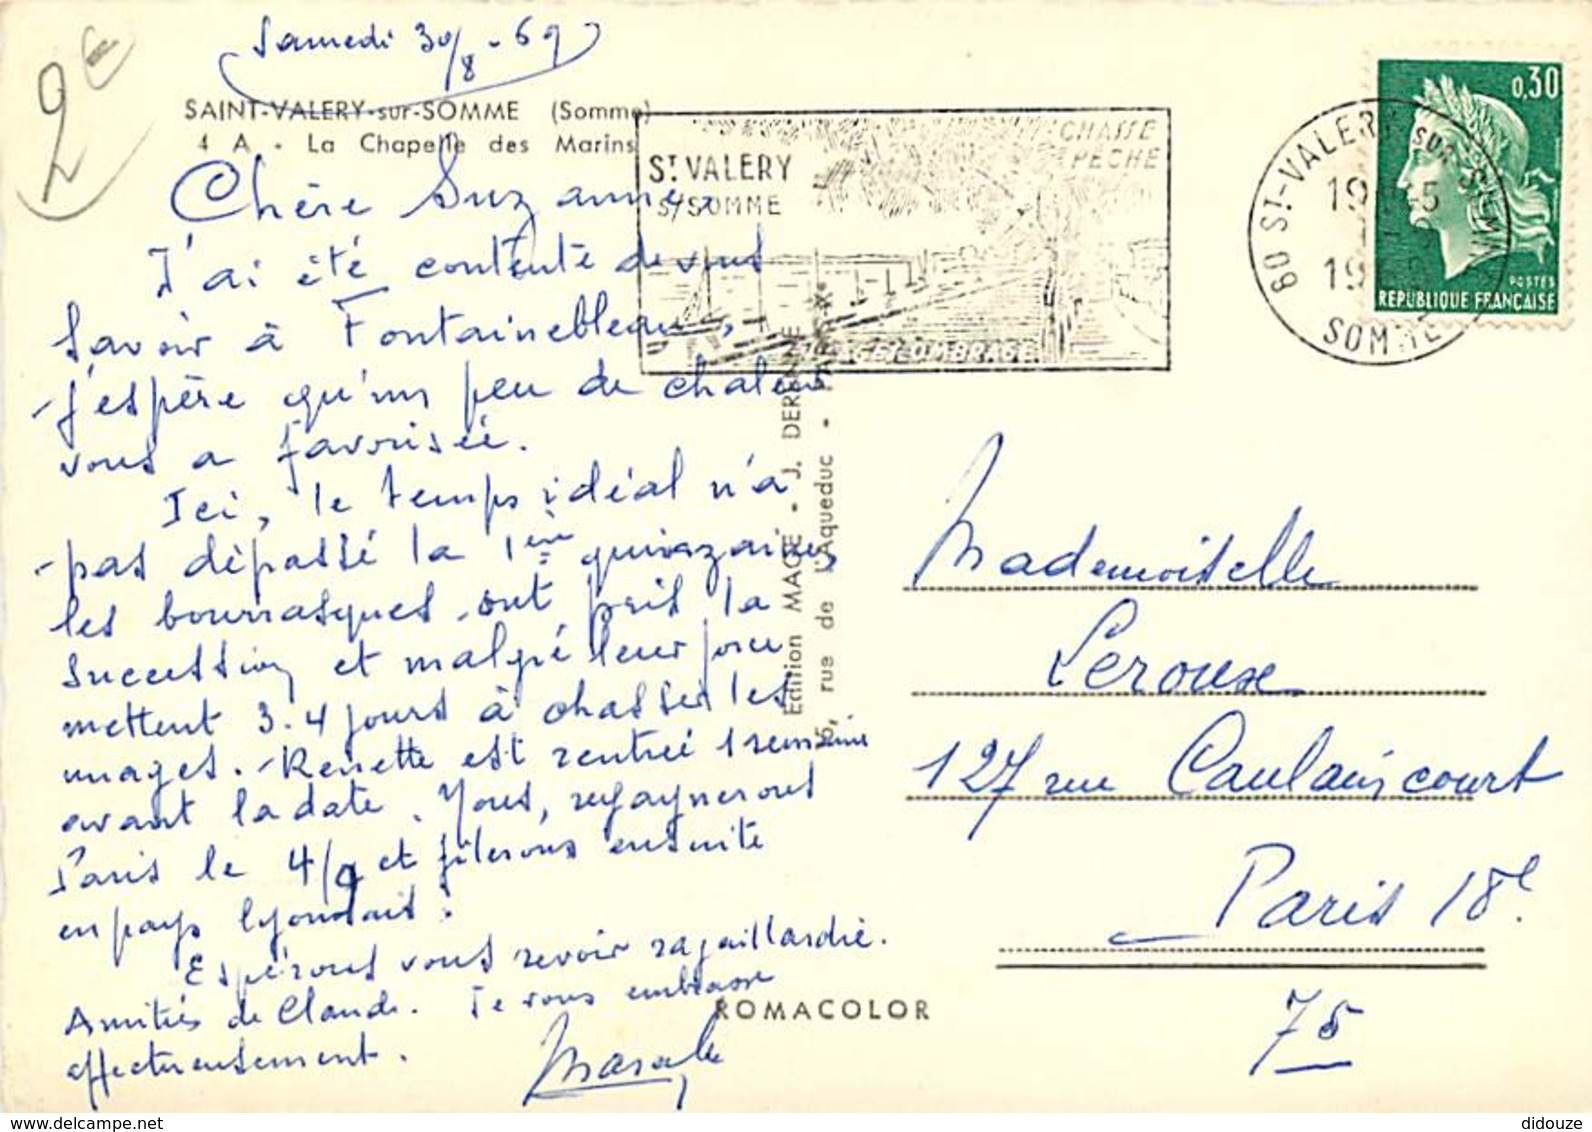 Samedi 30/8-69
2€
SAINT-VALERY-sur-SOMME (Somme)
4 A - La Chapelle des Marins
Chère Suzanne,
J'ai été contente de vous
savoir à Fontainebleau,
j'espère qu'un peu de chaleur
vous a favorisée.
Ici, le temps idéal n'a
pas dépassé la 1ère quinzaine,
les bourrasques ont pris la
succession et malgré leur force
mettent 3-4 jours à chasser les
nuages. - Renette est rentrée 1 semaine
avant la date. Nous, regagnerons
Paris le 4/9 et filerons ensuite
en pays lyonnais.
Espérons vous revoir ragaillardie.
Amitiés de Claude. Je vous embrasse
affectueusement.
ST VALERY
S/SOMME
CHASSE
PÊCHE
PLAGE OMBRAGE
80 ST-VALERY SUR SOMME
SOMME
0,30
POSTES
REPUBLIQUE FRANÇAISE
Edition MAGE - J. DERENNE
rue de l'Aqueduc - PARIS-X
Mademoiselle
Leroux
127 rue Caulaincourt
Paris 18e
75
ROMACOLOR
delcampe.net
didouze